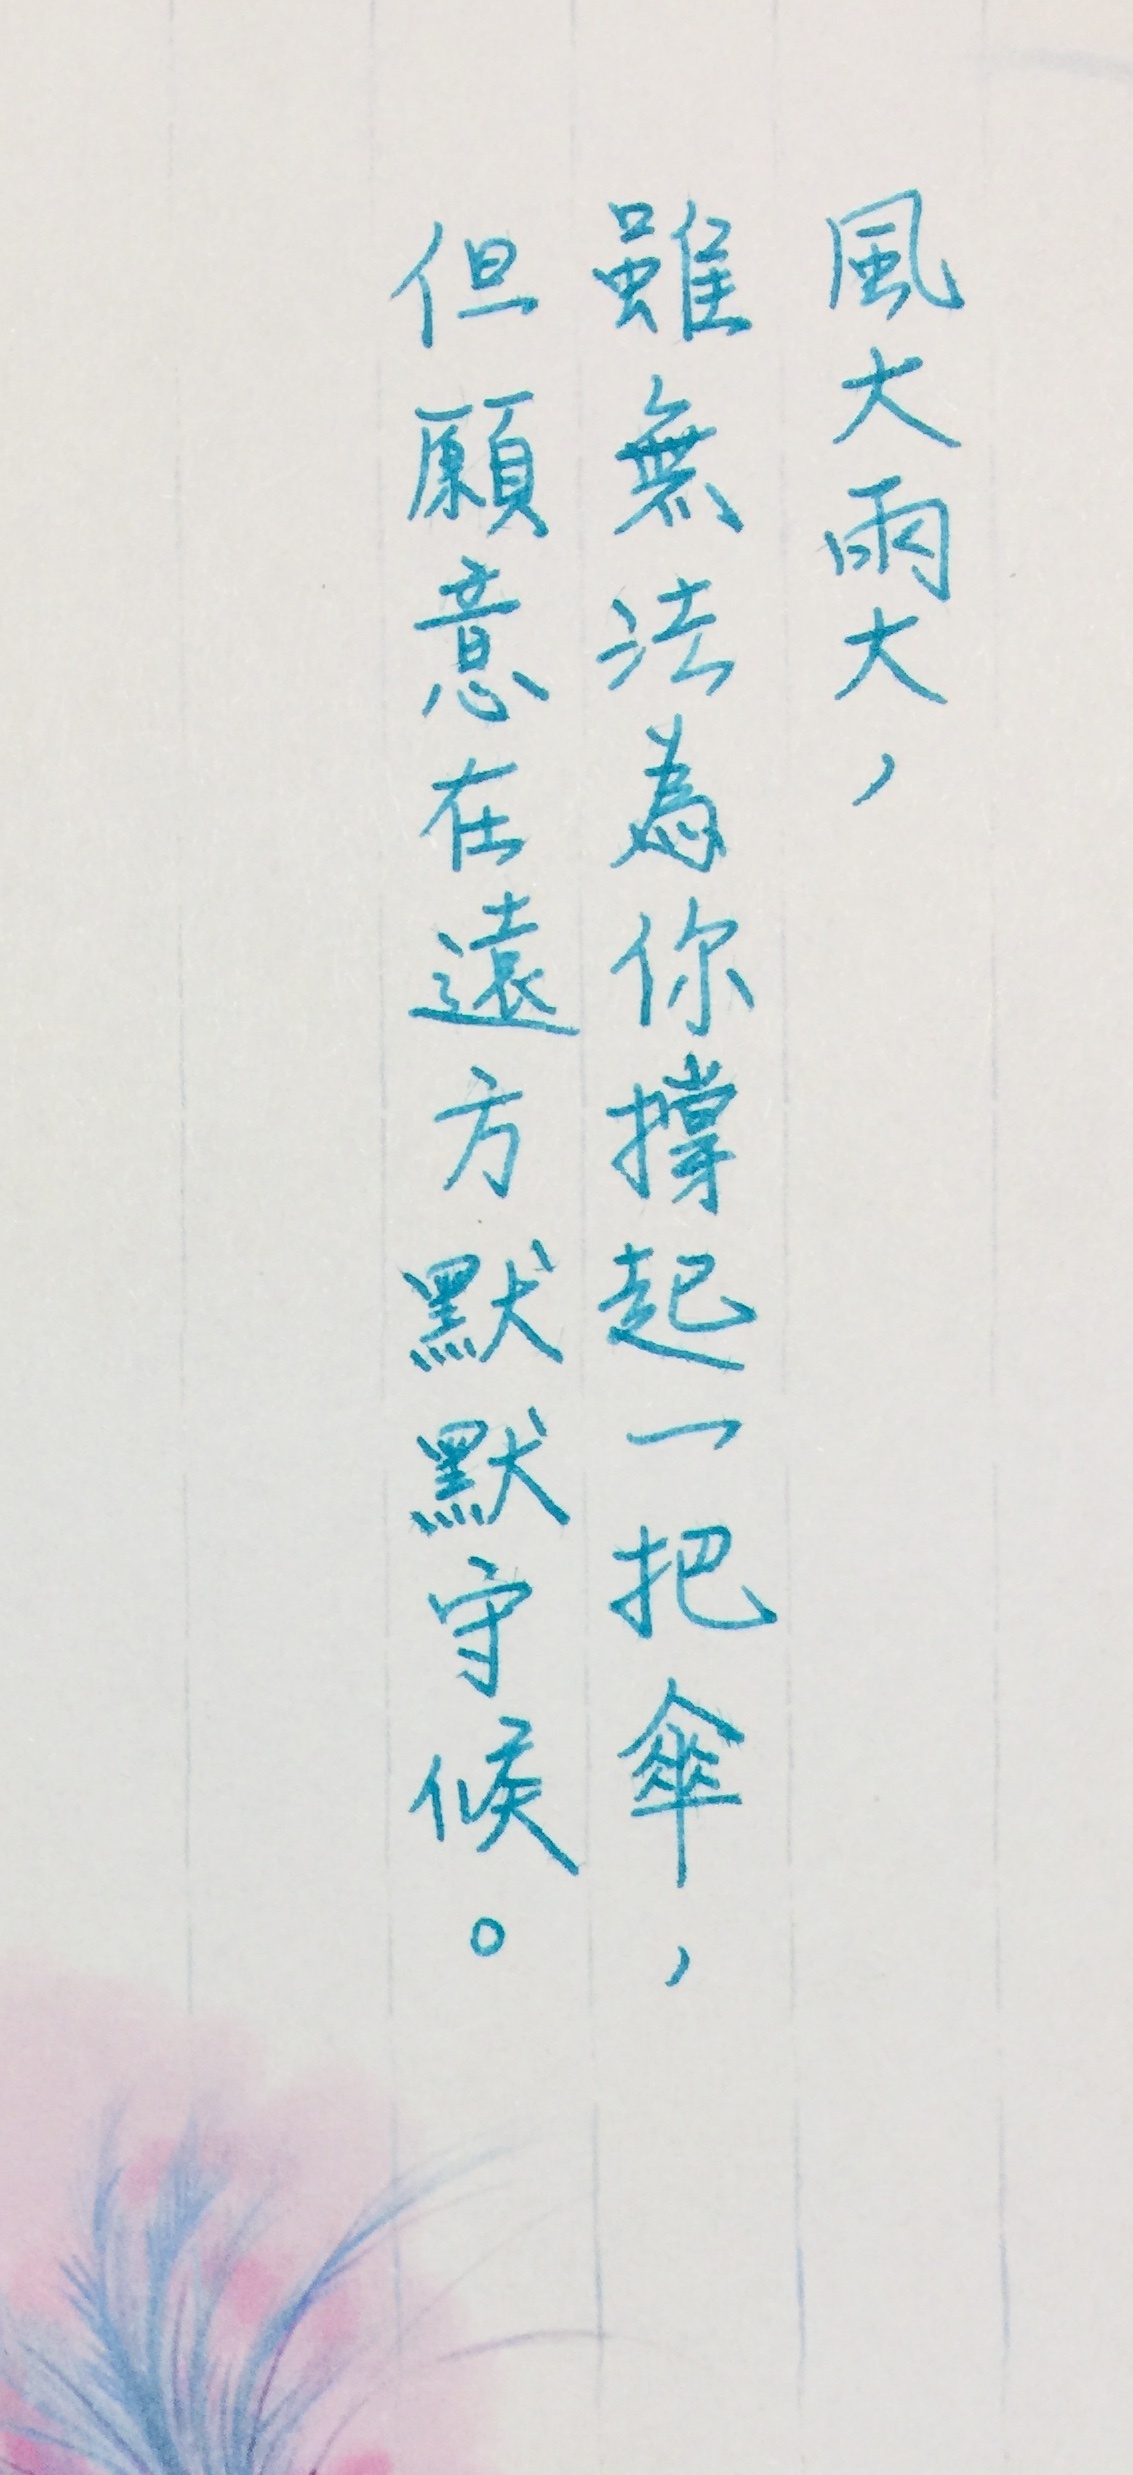 風大雨大，
雖無法為你撐起一把傘，
但願意在遠方默默守候。